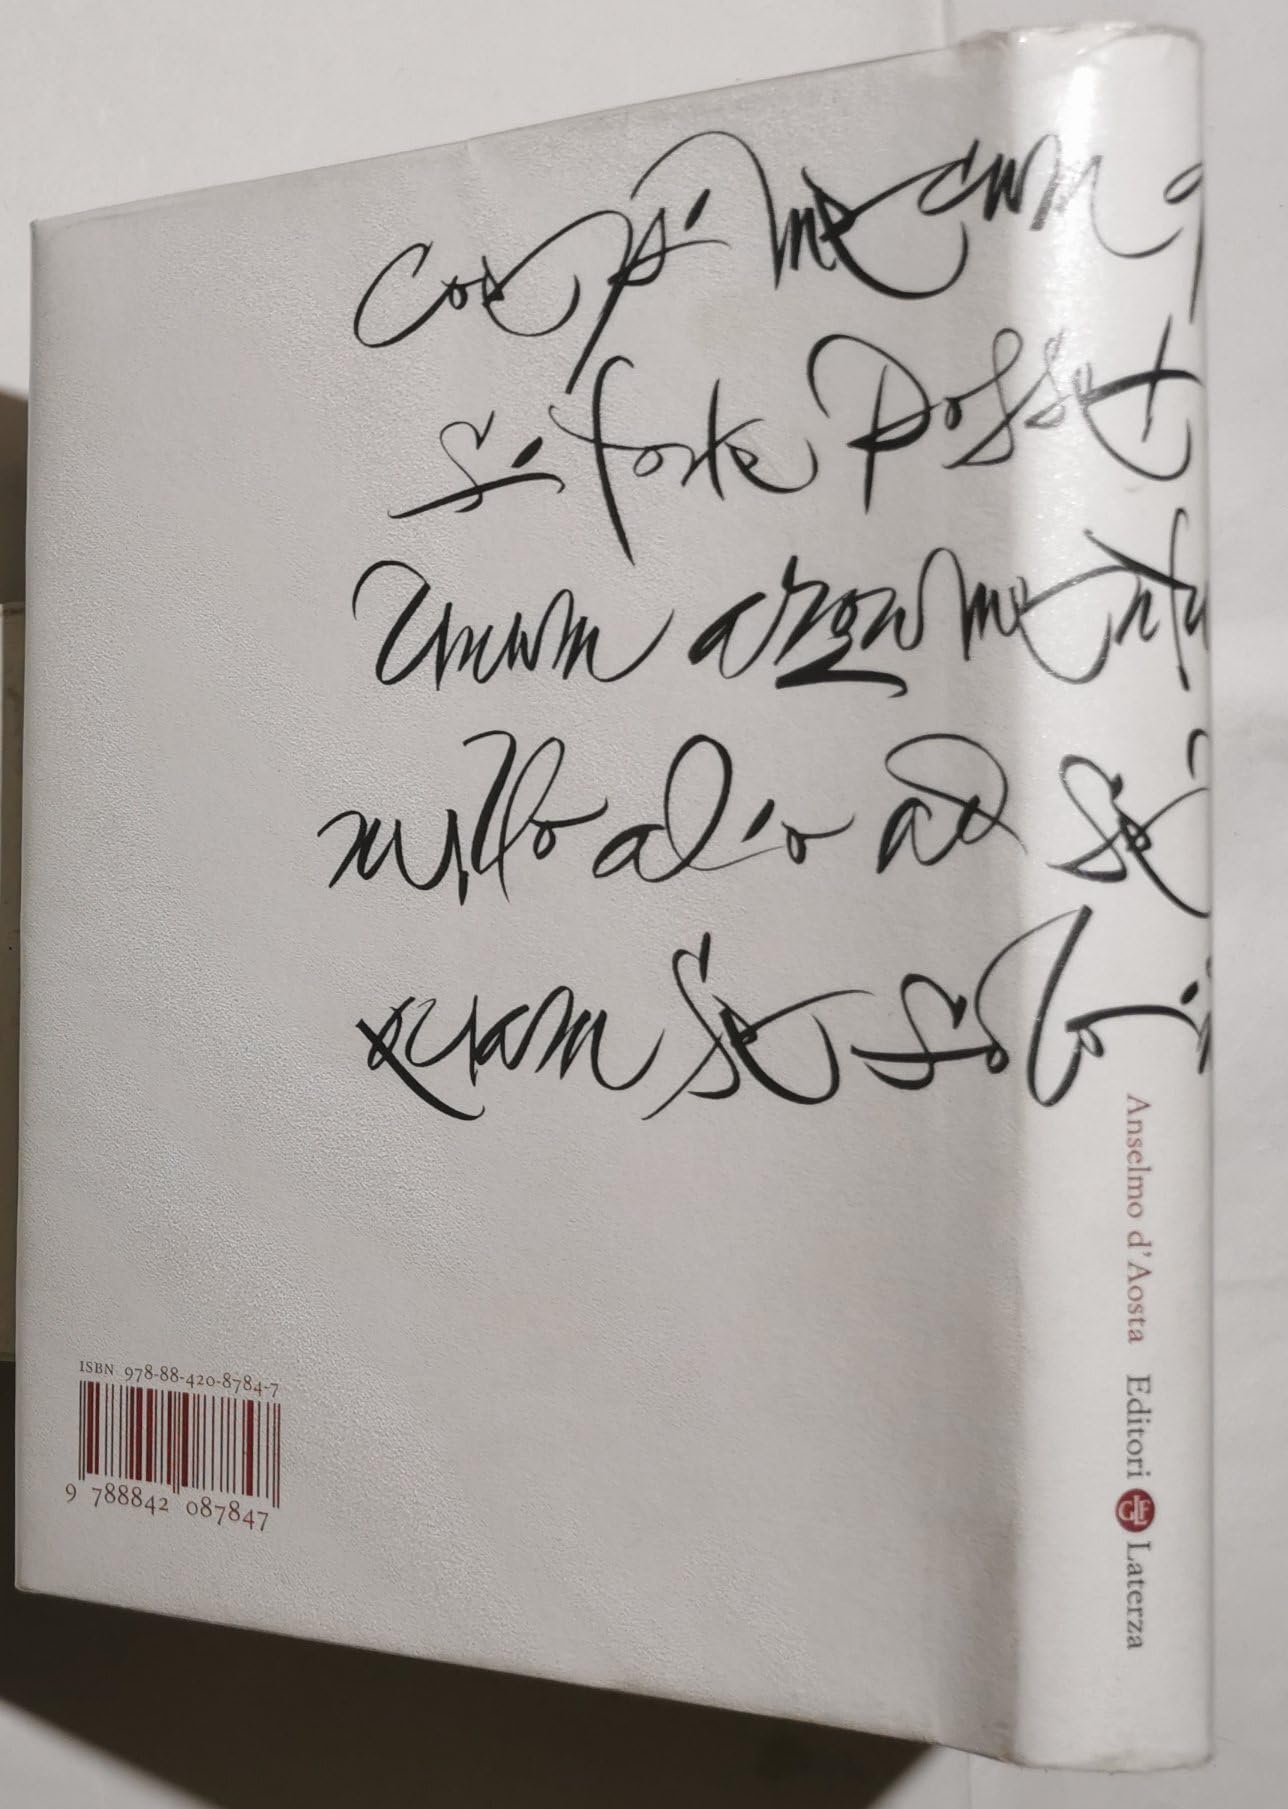 coepi mecum q
si forte posset
unum argumentu
nullo alio ad se
quam se solo i
Anselmo d'Aosta Editori Laterza
ISBN 978-88-420-8784-7
9 788842 087847